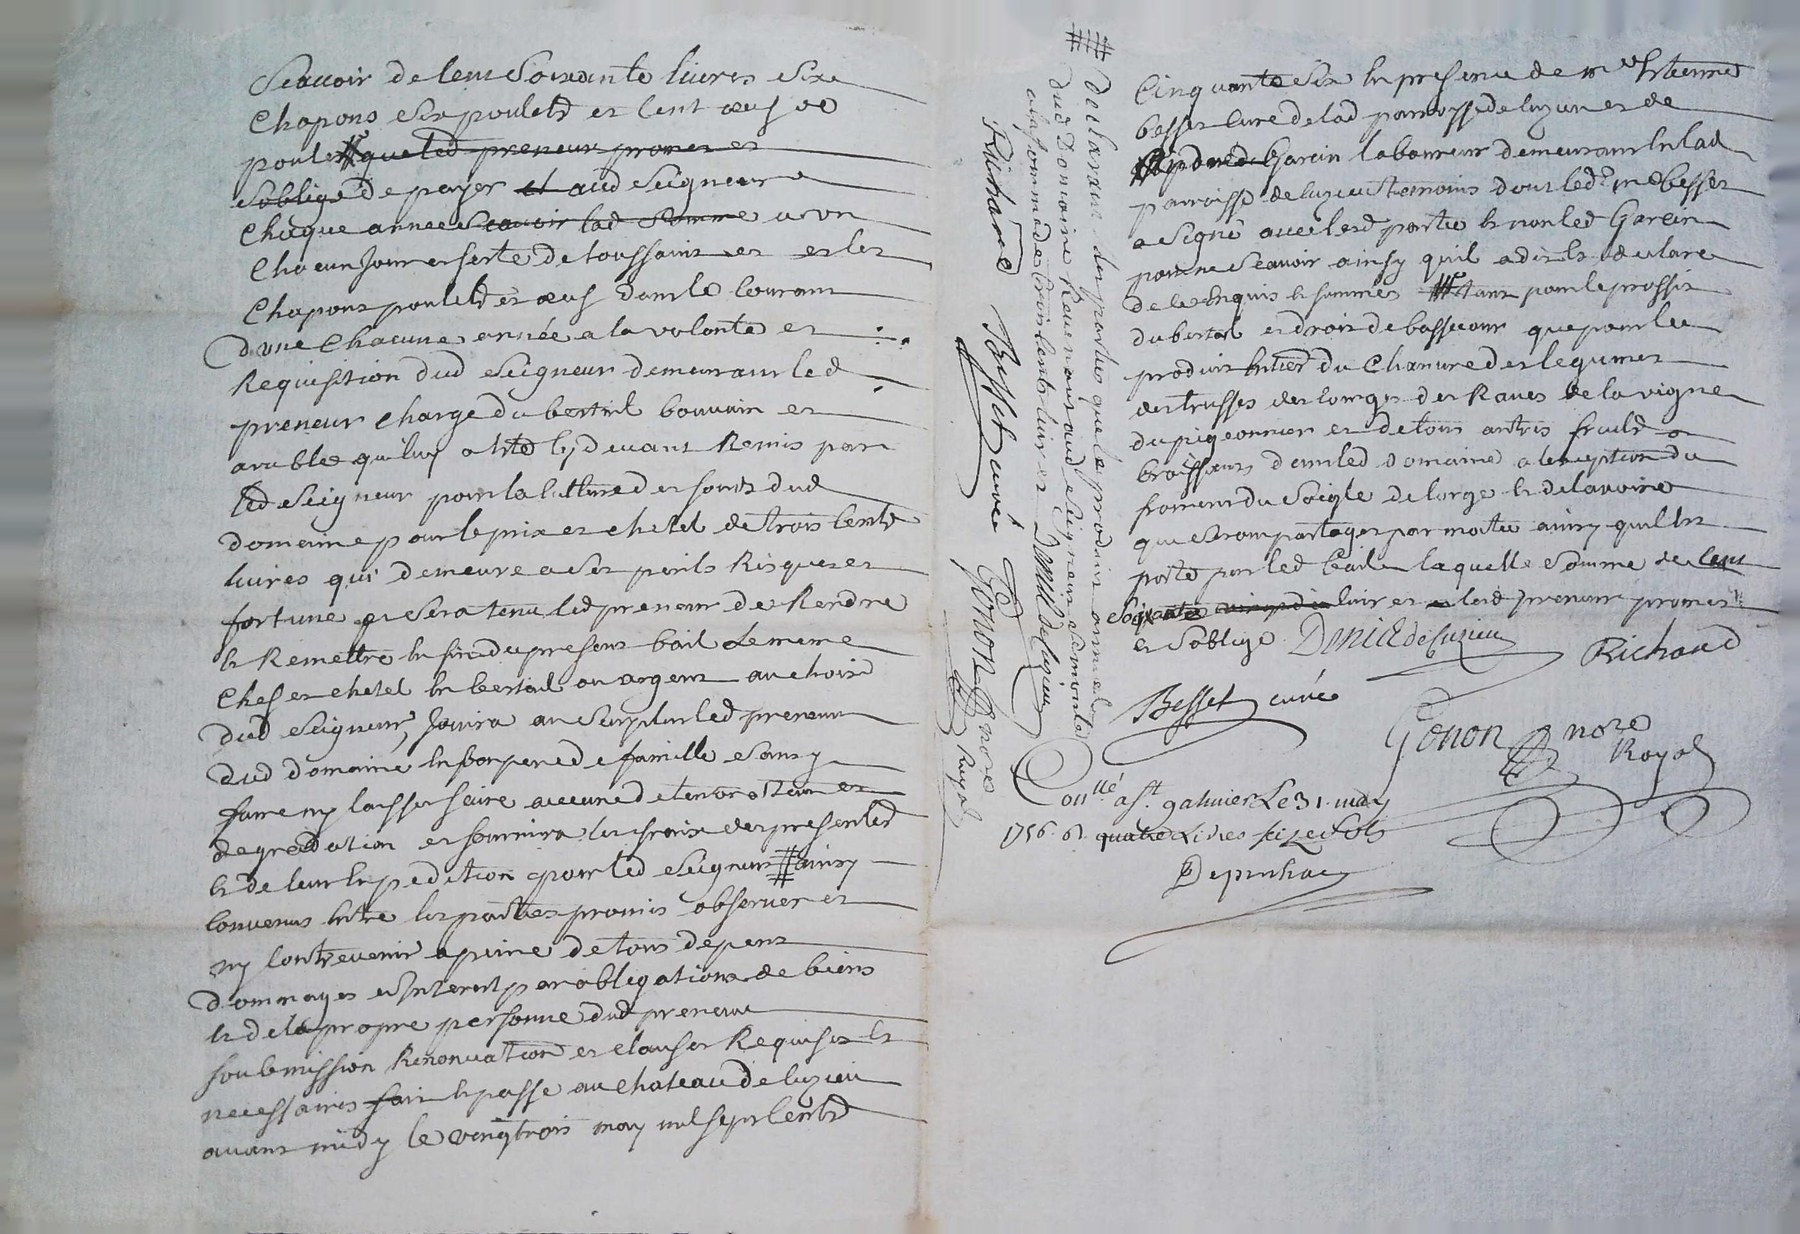 Scavoir de cent Soixante livres Six
Chapons Six pouletz et cent œufs de
poules # que led preneur promet et
soblige de payer et aud Seigneur
chaque annee Scavoir lad Somme a un
chacun Jour et feste de toussaint et et les
chapons pouletz et œufs dans le courant
dune chacune année a la volonté et
Requisition dud Seigneur demeurant led
preneur chargé du bestial bouvain et
arable qui luy a été cy devant Remis par
led Seigneur pour la culture des fonds dud
domaine pour le prix et chetel de trois centz
livres qui demeure a Ses perils Risques et
fortune et Sera tenu led preneur de Rendre
et Remettre en fin du present bail Le meme
chef et chetel en bestial ou argent au choix
dud Seigneur, Jouira au Surplus led preneur
dud domaine en bon pere de famille Sans y
faire ny laisser faire aucune deterioration et
degredation et fournira les fraix des presentes
et de leur expedition pour led Seigneur # ainsy
convenus entre les parties promis observer et
ny contrevenir a peine de tous depens
dommages et Interest par obligations de biens
et de la propre personne dud preneur
soubmission Renonciation et clauses Requises et
necessaires fait et passe au chateau de luzieu
avant midy le vingt trois may mil sept centz
# declarant les parties que le produit annuel
dud Domaine Revenant aud Seigneur Se monte
a la somme de trois cents livres Denis de Luzieu
Richard Besset curé Gonon nore Royal
Cinquante Six en presence de mre Etienne
besset curé de lad parroisse de luzieu et de
Garcin laboureur demeurant en lad
parroisse de luzieu temoins dont led Sr besset
a Signé avec lesd partie et non led Garcin
pour ne Scavoir ainsy quil a dit et declaré
de ce enquis et sommés # tant pour le proffit
du bestail et droit de bassecour que pour le
produit entier du Chanvre des legumes
des trusses des courges des Raves de la vigne
du pigeonnier et de tous autres fruits
croissants dans led domaine a l'exception du
froment du Soigle de lorge et de lavoine
que Seront partagés par moitié ainsy quil est
porté par led bail laquelle Somme de cent
Soixante livres led preneur promet
et Soblige Denis de Luzieu Richard
Besset curé
Gonon nore Royal
Conllé a St galmier Le 31 may
1756. R. quatre Livres seize sols